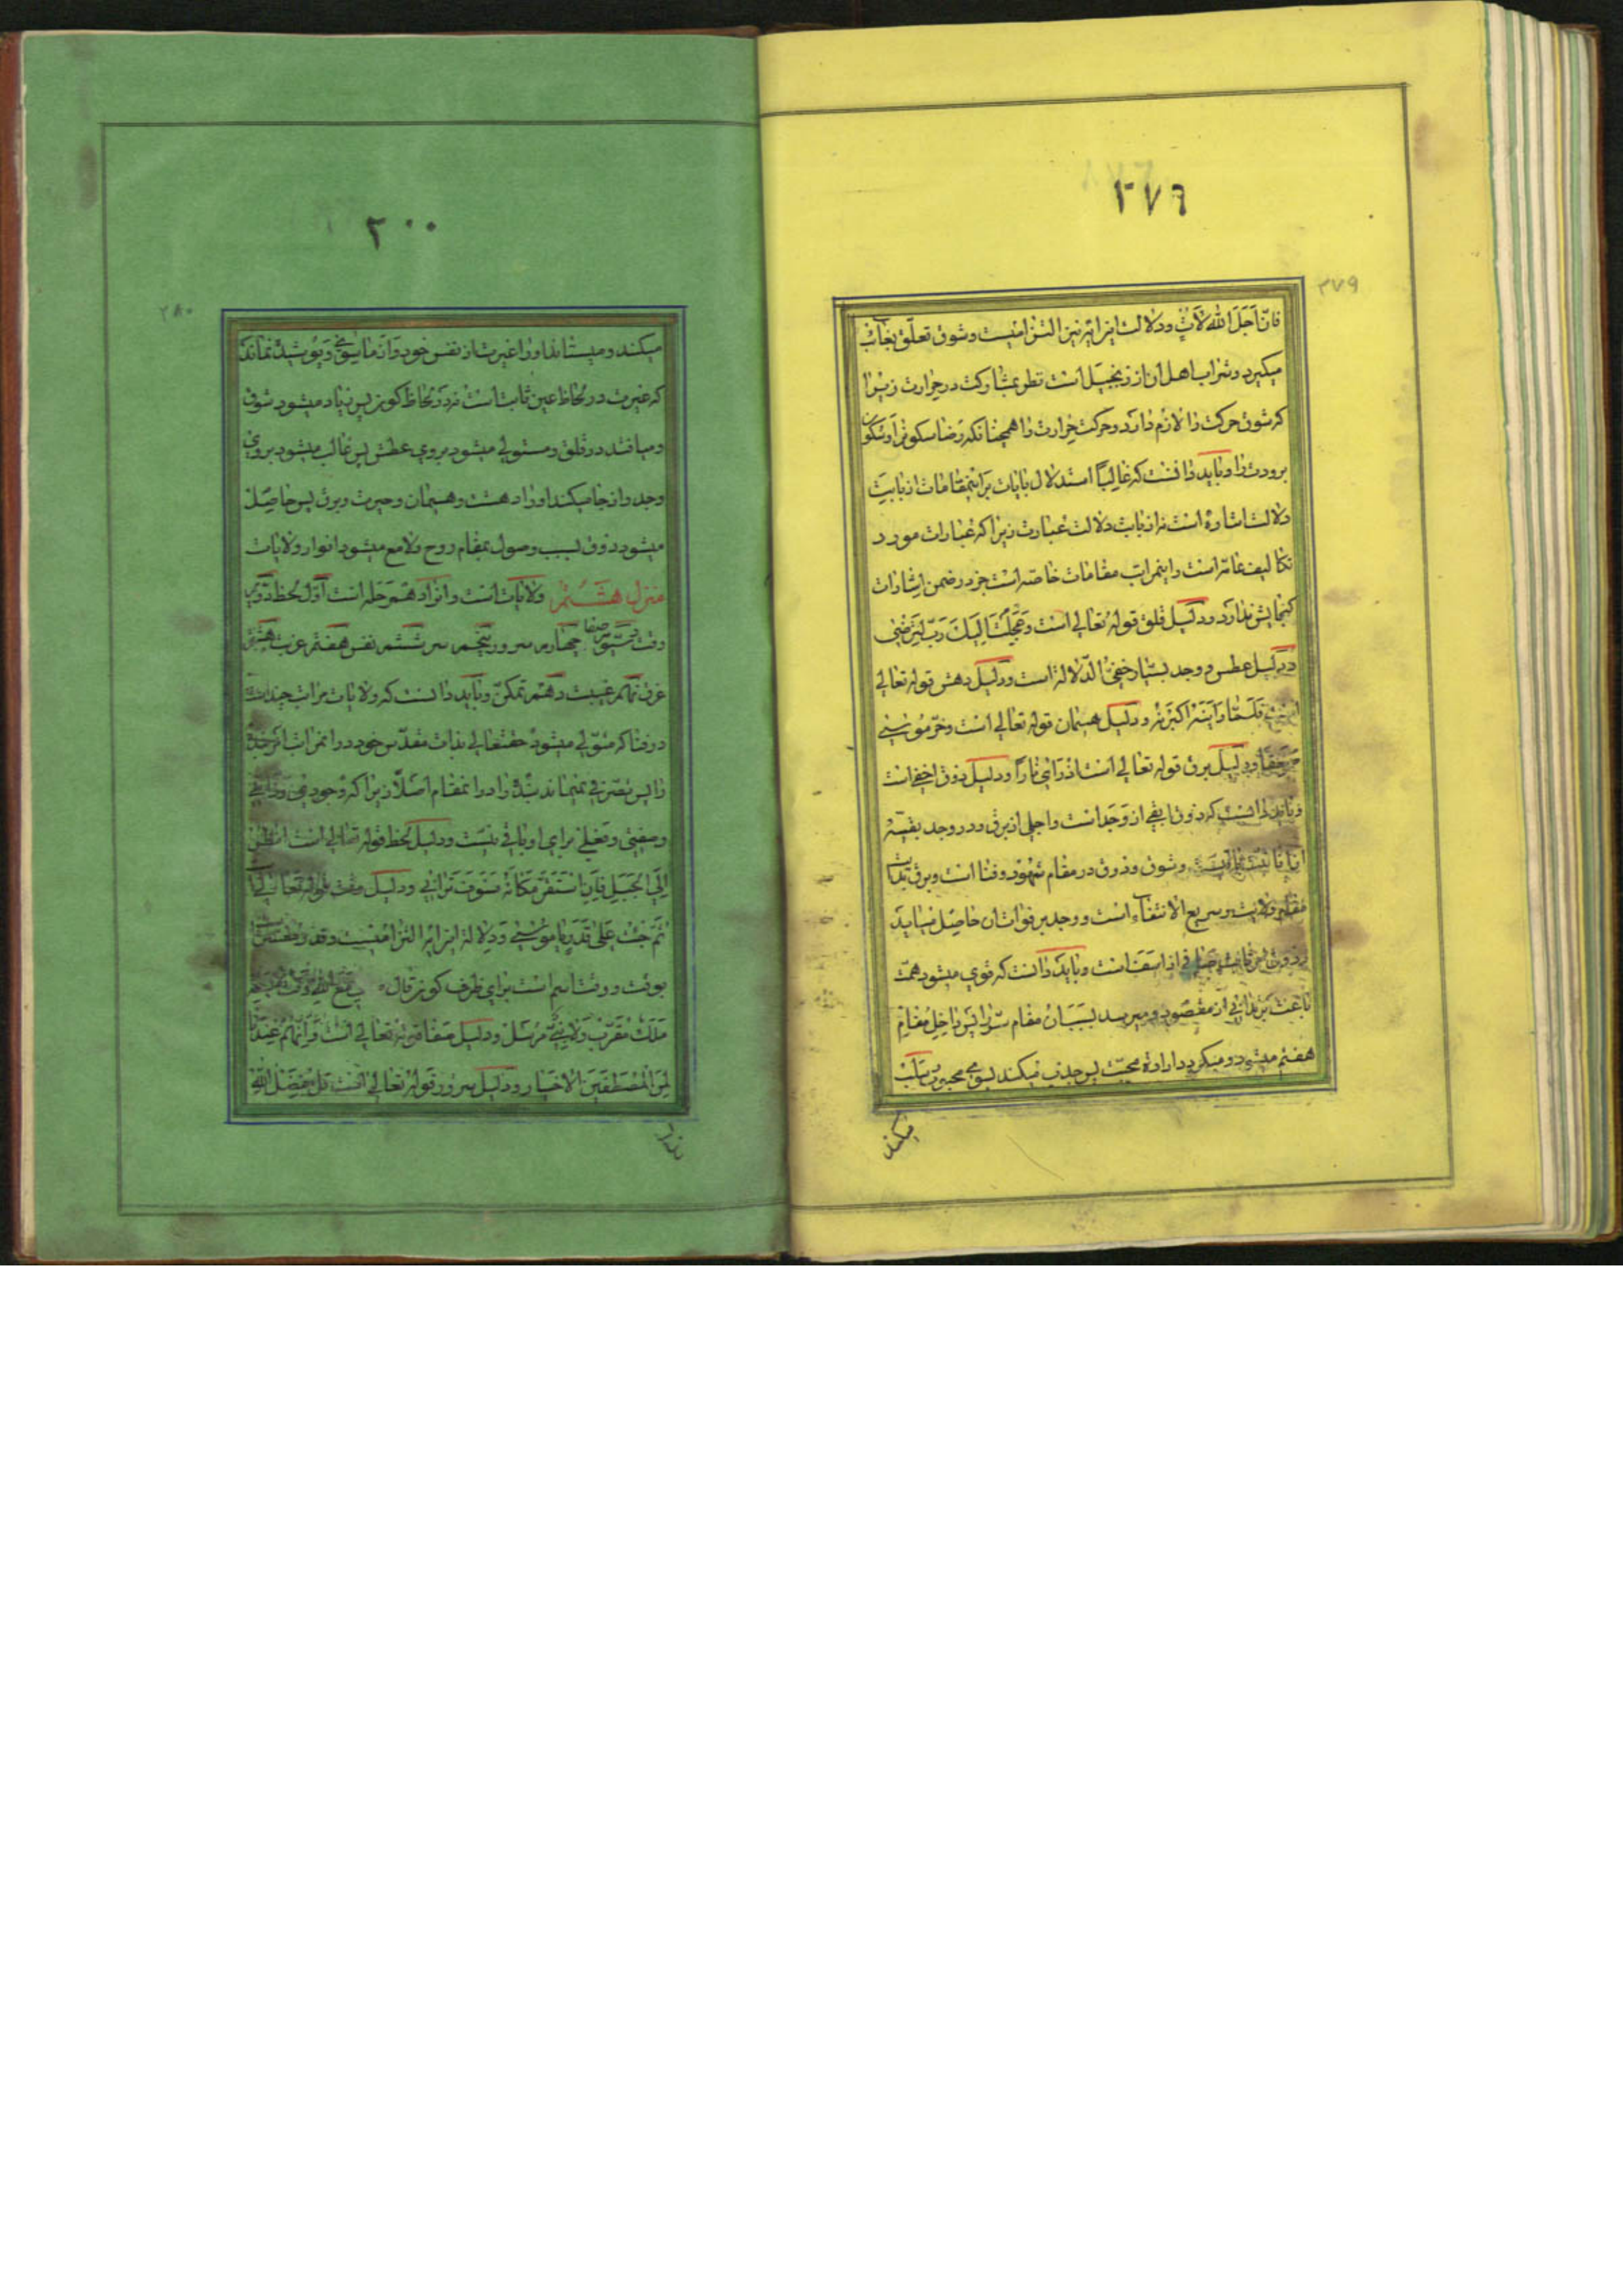 ۲۷۹
۲۷۹
فانّ اَجَلَ الله لَآتٍ ودلالت این ایه نیز التزامیست وشوق تعلّق بغایب
میکیرد وشراب اهل ان از زنجبیل است نظر بمشارکت در حرارت زیرا
که شوق حرکت را لازم دارد وحرکت حرارت را همچنانکه رضا سکونرا وسکون
برودت را وباید دانست که غالباً استدلال بایات بر اینمقامات از بابت
دلالت اشاره است نه از بابت دلالت عبارت زیرا که عبارات مورد
تکالیف عامّه است واینمراتب مقامات خاصّه است جز در ضمن اشارات
کنجایش ندارد ودلیل قلق قوله تعالی است وَعَجِلْتُ اِلَیْكَ رَبِّ لِتَرْضٰی
ودلیل عطش ووجد بسیار خفیّ الدّلالة است ودلیل دهش قوله تعالی
است فَلَمّا رَاَیْنَهُ اَکْبَرْنَهُ ودلیل هیمان قوله تعالی است وخرّ موسی
صعقاً ودلیل برق قوله تعالی است اذ رَاٰی ناراً ودلیل ذوق اخفی است
وباید دانست که ذوق ابقی از وجد است واجلی از برق ودر وجد بقیّه
وشوق وذوق در مقام شهود وفنا است وبرق بدایت
مقام ولایت وسریع الانتفاء است ووجد بر فوات ان حاصل میاید
است وباید دانست که قوی میشود همّت
مقصود ومیرسد مقام سرّ را پس داخل مقام
هفتم میشود ومیکردد ارادهٔ محبّت پس جذب میکند بسوی محبوب
میکند
۲۰۰
۲۸۰
میکند ومیستاند اورا غیرت از نفس خود واز ماسوی وپوشیده نماند
که غیرت در لحاظ عین ثابت است نه در لحاظ کون پس زیاد میشود شوق
ومیافتد در قلق ومستولی میشود بروی عطش پس غالب میشود بروی
وجد واز جا میکند اورا دهشت وهیمان وحیرت وبرق پس حاصل
میشود ذوق بسبب وصول بمقام روح ولامع میشود انوار ولایات
منزل هشتم ولایات است وانرا دهم مرحله است اوّل لحظ دوّم
وقت سیّوم صفا چهارم سرور پنجم سرّ ششم نفس هفتم غربت هشتم
غرق نهم غیبت دهم تمکّن وباید دانست که ولایات مراتب چند است
در فنا که متولّی میشود حقتعالی بذات مقدّس خود در انمراتب امر بنده
را پس تصرّفی نمیماند بنده را در انمقام اصلاً زیرا که وجودی وذاتی
وصفتی وفعلی برای او باقی نیست ودلیل لحظ قوله تعالی است انظر
اِلَی الْجَبَلِ فَاِنِ اسْتَقَرَّ مَکانَهُ فَسَوْفَ تَرانی ودلیل وقت قوله تعالی است
ثُمَّ جِئْتَ عَلٰی قَدَرٍ یا مُوسٰی وَدلالة این ایه التزامیست وقدر
بوقت ووقت اسم است برای ظرف کون قال لی مع الله وقت
مَلَكٌ مُقَرَّبٌ وَلا نَبِیٌّ مُرْسَل ودلیل صفا قوله تعالی است وَاِنَّهُمْ عِنْدَنا
لَمِنَ الْمُصْطَفَیْنَ الاخیار ودلیل سرور قوله تعالی است قل بفضل الله